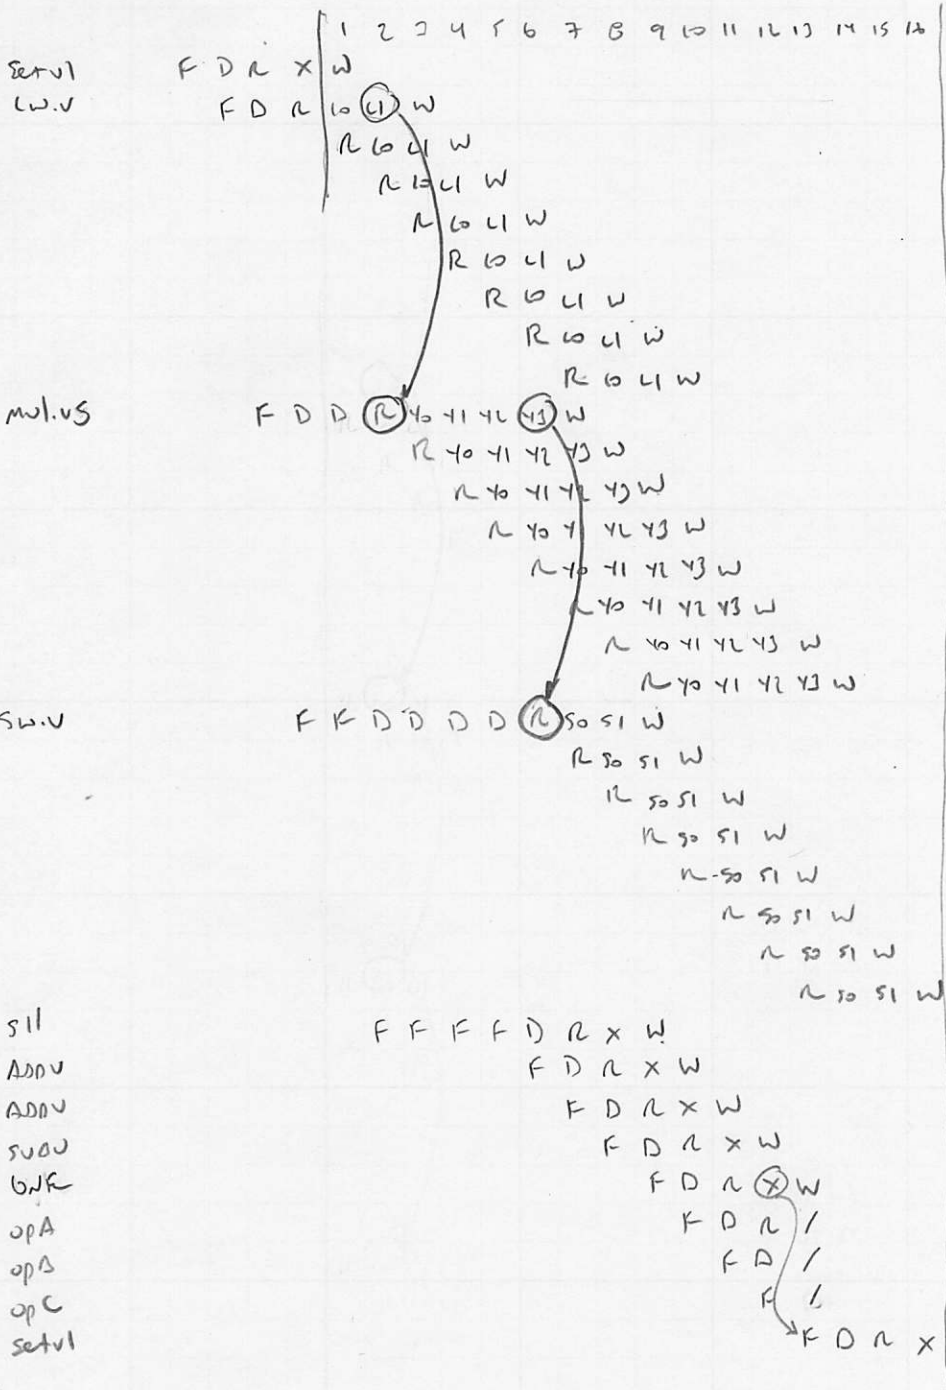 1 2 3 4 5 6 7 8 9 10 11 12 13 14 15 16
setvl F D R X W
lw.v F D R L0 L1 W
R L0 L1 W
R L0 L1 W
R L0 L1 W
R L0 L1 W
R L0 L1 W
R L0 L1 W
R L0 L1 W
mul.vs F D D R Y0 Y1 Y2 Y3 W
R Y0 Y1 Y2 Y3 W
R Y0 Y1 Y2 Y3 W
R Y0 Y1 Y2 Y3 W
R Y0 Y1 Y2 Y3 W
R Y0 Y1 Y2 Y3 W
R Y0 Y1 Y2 Y3 W
R Y0 Y1 Y2 Y3 W
sw.v F F D D D D R S0 S1 W
R S0 S1 W
R S0 S1 W
R S0 S1 W
R S0 S1 W
R S0 S1 W
R S0 S1 W
R S0 S1 W
sll F F F F D R X W
ADDU F D R X W
ADDU F D R X W
SUBU F D R X W
BNE F D R X W
opA F D R /
opB F D /
opC F /
setvl F D R X